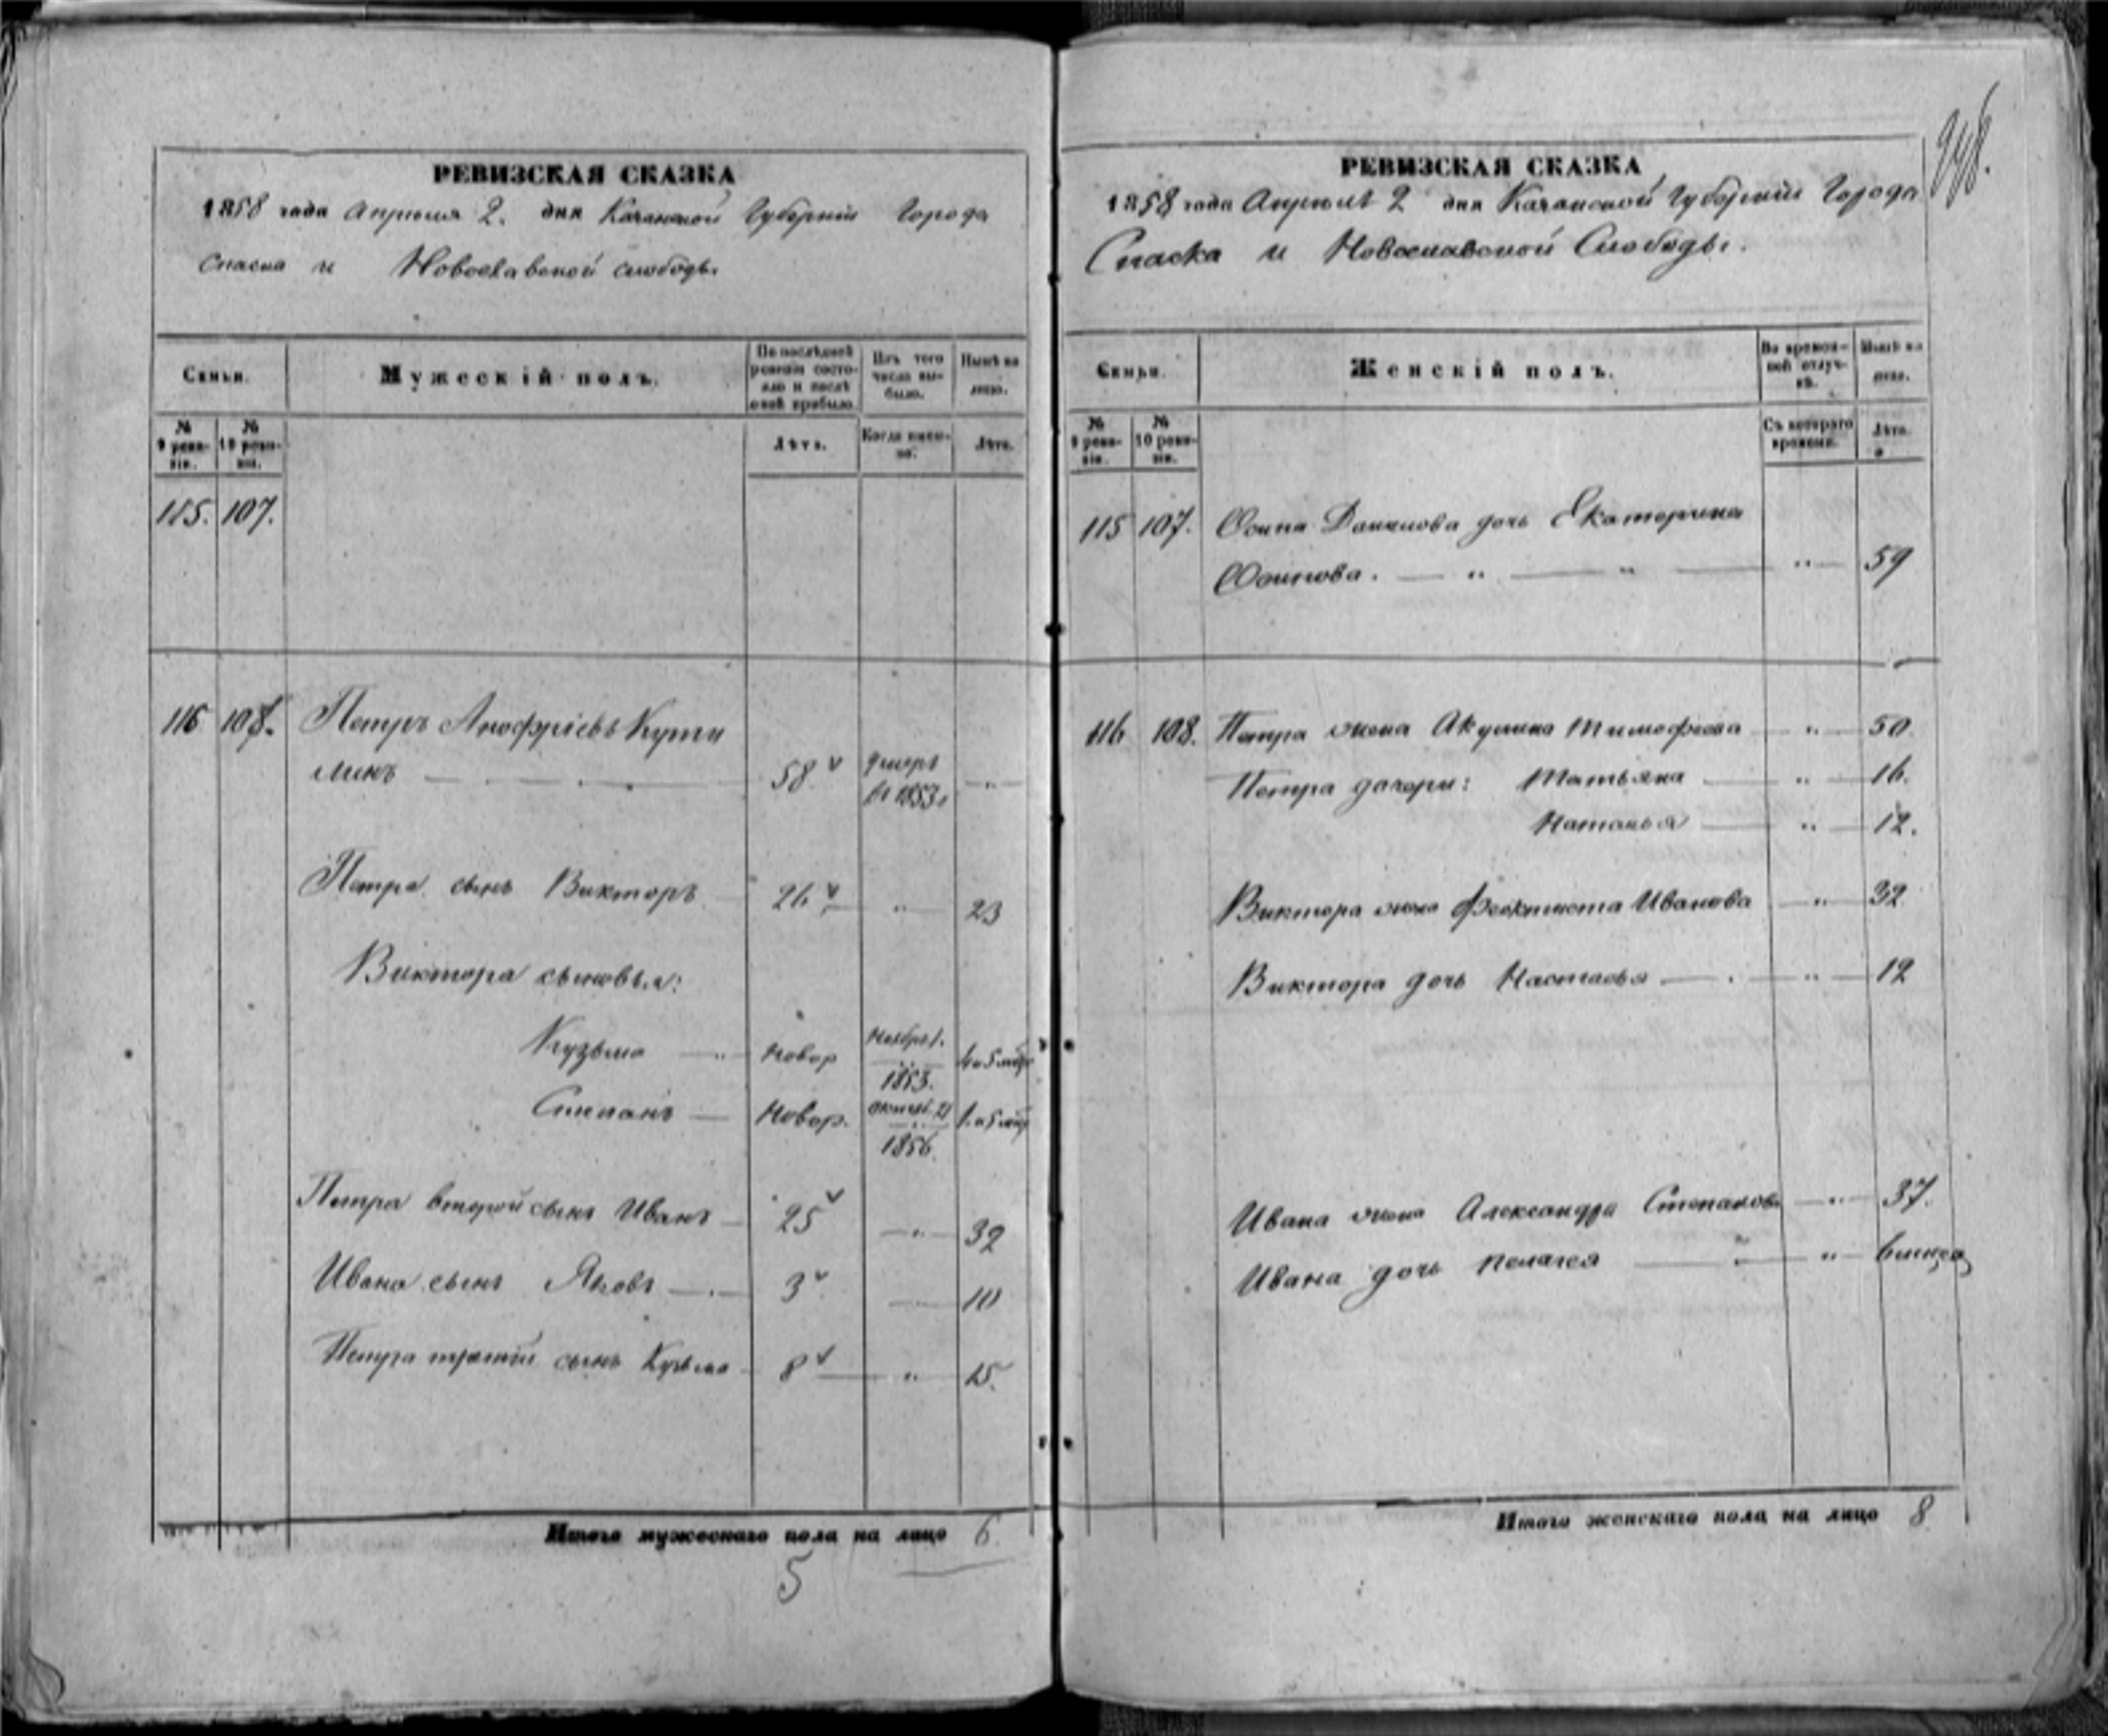 РЕВИЗСКАЯ СКАЗКА
1858 года Апреля 2. дня Казанской Губернии Города
Спаска и Новоспавской слободы.
Семьи.
Мужескій полъ.
По послѣдней ревизіи состояло и послѣ оной прибыло.
Изъ того числа выбыло.
Нынѣ на лицо.
№ 9 ревизіи.
№ 10 ревизіи.
Лѣта.
Когда именно.
Лѣта.
115. 107.
116 108. Петръ Анофріевъ Кутю
минъ 58 умеръ
въ 1853 г
Петра сынъ Викторъ 26 " 23
Виктора сыновья:
Кузьма Новор Ноября 1. 1853. 4 и 5 мѣс
Степанъ Новор. октяб. 21 1856. 1. и 5 мѣс
Петра второй сынъ Иванъ 25 " 32
Ивана сынъ Яковъ 3 10
Петра третій сынъ Кузьма 8 " 15.
Итого мужескаго пола на лицо 6.
5
948.
РЕВИЗСКАЯ СКАЗКА
1858 года Апреля 2 дня Казанской Губерніи Города
Спаска и Новоспавской Слободы.
Семьи.
Женскій полъ.
Во временной отлучкѣ.
Нынѣ на лицо.
№ 9 ревизіи.
№ 10 ревизіи.
Съ котораго времени.
Лѣта.
115 107. Осипа Данилова дочь Екатерина
Осипова. " " " 59
116 108. Петра жена Акулина Тимофеева " 50.
Петра дочери: Татьяна " 16.
Наталья " 12.
Виктора жена Феоктиста Иванова " 32
Виктора дочь Настасья " 12
Ивана жена Александра Степанова " 37.
Ивана дочь Пелагея " " 6 месяц
Итого женскаго пола на лицо 8